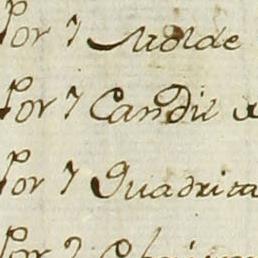 Por 7 Molde
Por 7 Candil
Por 7 Quadrita
Por 2